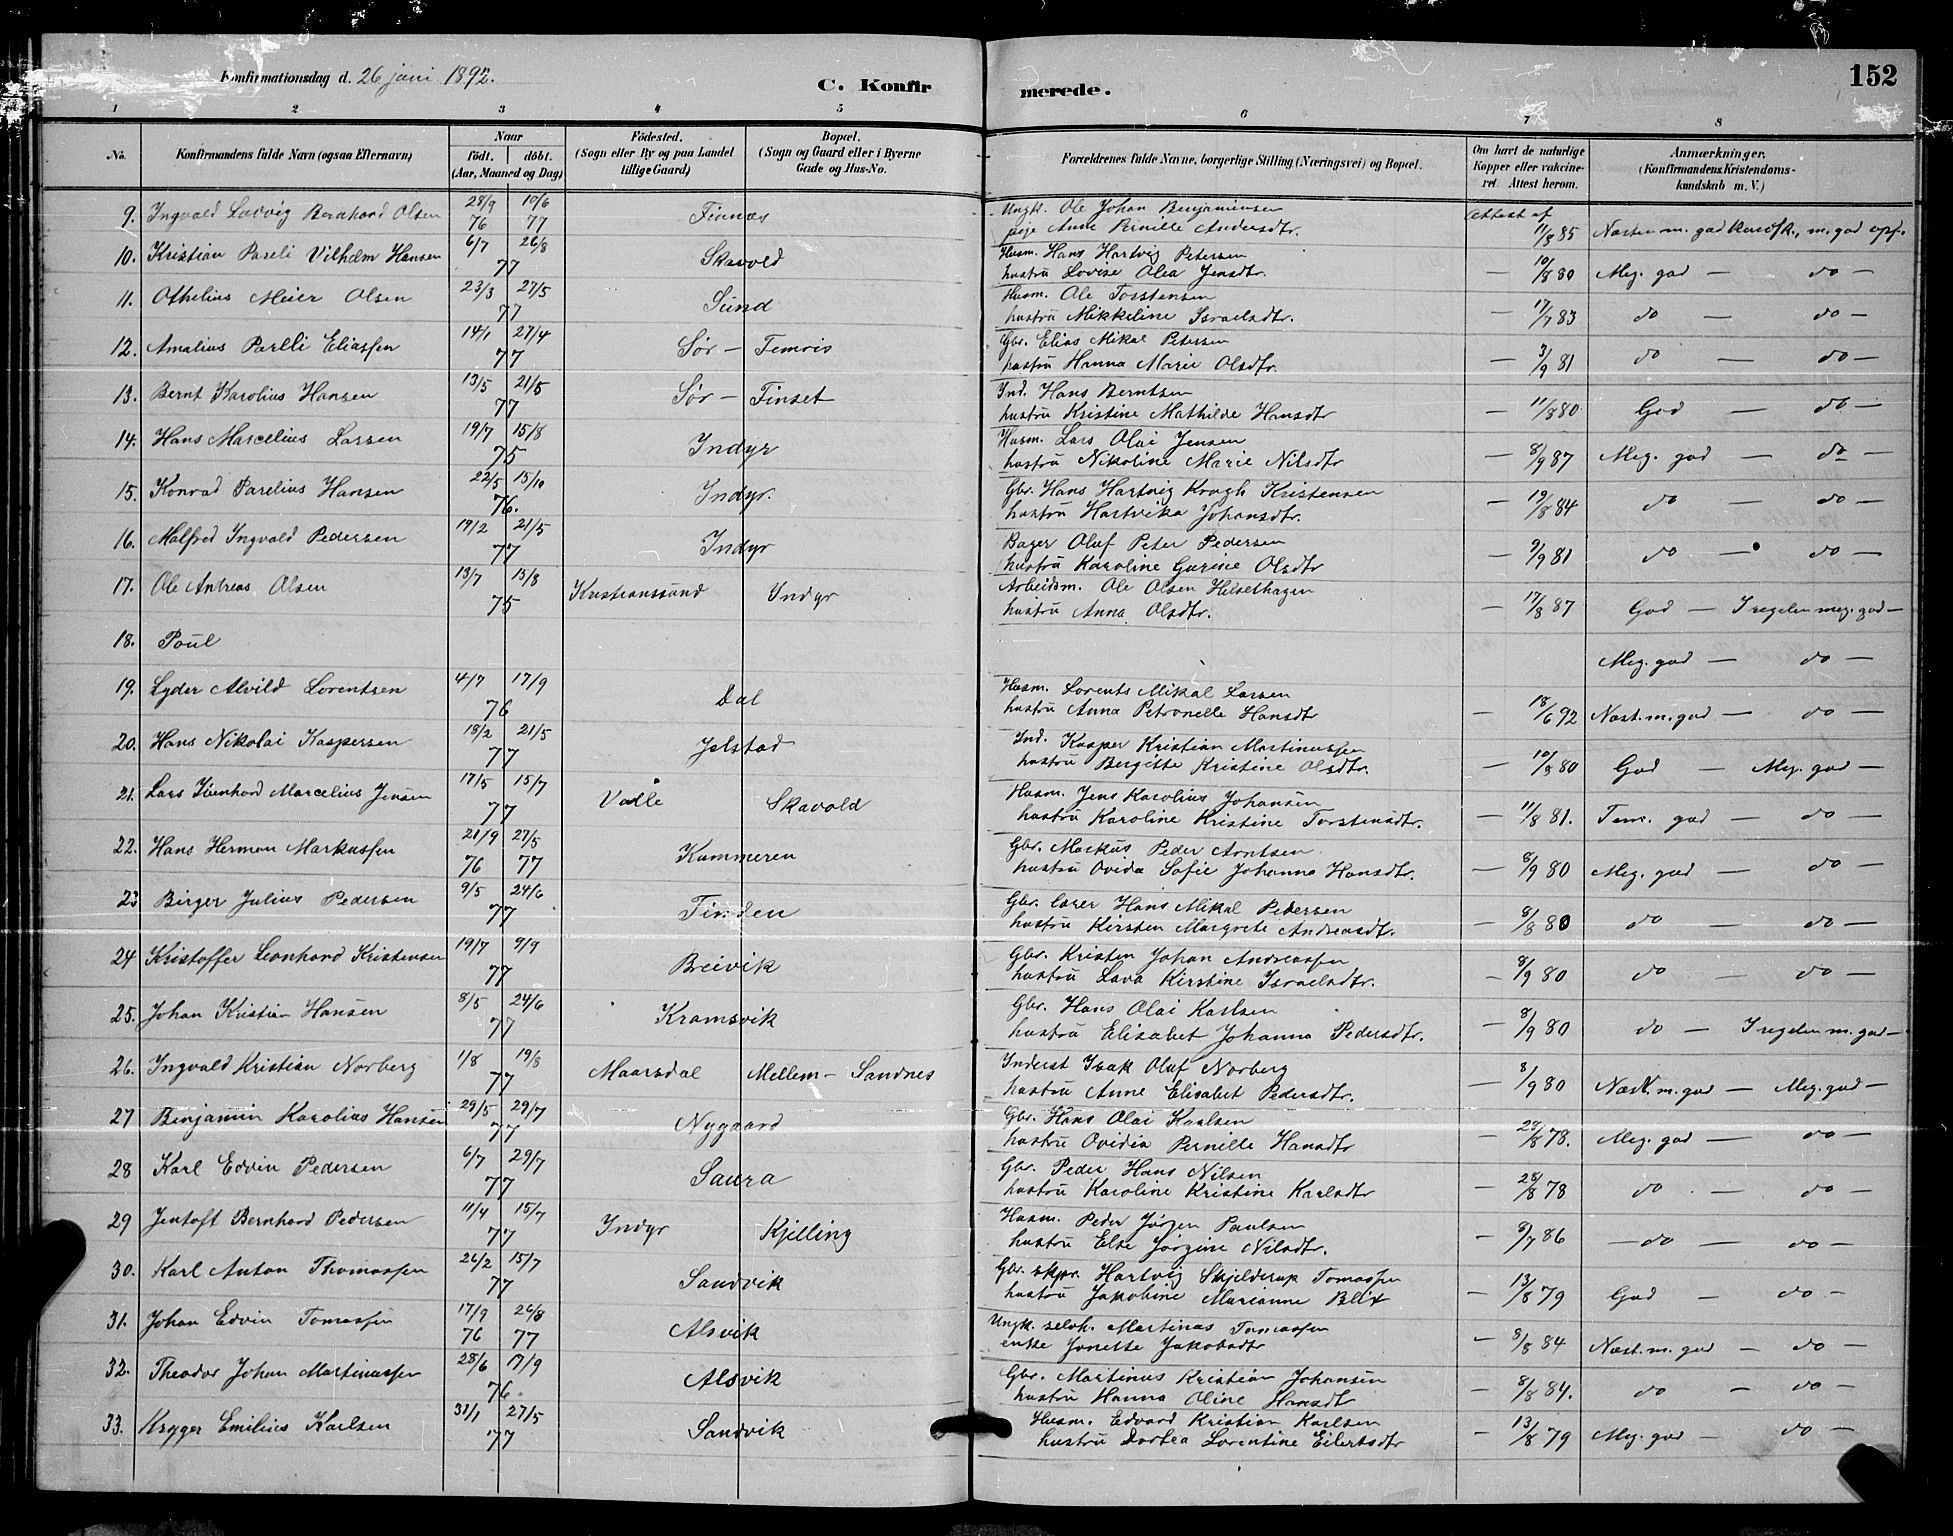 Konfirmationsdag d. 26 juni 1892.
C. Konfirmerede.
152
1 2 3 4 5 6 7 8
No. Konfirmandens fulde Navn (ogsaa Efternavn) Naar födt. döbt. (Aar, Maaned og Dag) Födested. (Sogn eller By og paa Landet tillige Gaard) Bopæl. (Sogn og Gaard eller i Byerne Gade og Hus-No. Forældrenes fulde Navne, borgerlige Stilling (Næringsvei) og Bopæl. Om havt de naturlige Kopper eller vakcineret. Attest herom. Anmærkninger. (Konfirmandens Kristendomskundskab m. V.)
9. Ingvald Ludvig Bernhard Olsen 28/9 76 10/6 77 Finnæs Ungk. Ole Johan Benjaminsen
pige Anne Pernille Andersdtr. Attest af 11/8 85 Næsten m. god m. god opf.
10. Kristian Pareli Vilhelm Hansen 6/7 26/8 77 Skavold Husm. Hans Hartvig Petersen
hustru Lovise Olea Jensdtr. — 10/8 80 Meg. god — do —
11. Othelius Meier Olsen 23/3 27/5 77 Sund Husm. Ole Torstensen
hustru Mikkeline Israelsdtr. — 17/7 83 do — do —
12. Amalius Parelli Eliassen 14/1 27/4 77 Sør - Femris Gbr. Elias Mikal Petersen
hustru Hanna Marie Olsdtr. — 3/9 81 do — do —
13. Bernt Karolius Hansen 13/5 21/5 77 Sør - Finset Ind. Hans Berntsen
hustru Kristine Mathilde Hansdtr — 11/8 80 God — do —
14. Hans Marcelius Larsen 19/7 15/8 75 Indyr Husm. Lars Olai Jensen
hustru Nikoline Marie Nilsdtr — 8/9 87 Meg. god — do —
15. Konrad Parelius Hansen 22/5 15/10 76. Indyr. Gbr. Hans Hartvig Krogh Kristensen
hustru Hartvika Johansdtr. — 19/8 84 do — do —
16. Malfred Ingvald Pedersen 19/2 21/5 77 Indyr Bager Oluf Peter Pedersen
hustru Karoline Gurine Olsdtr — 9/9 81 do — do —
17. Ole Andreas Olsen 13/7 15/8 75 Kristianssund Indyr Arbeidsm. Ole Olsen Helsethagen
hustru Anna Olsdtr. — 17/8 87 God — I regelen meg. god —
18. Poul Meg. god — do —
19. Lyder Alvild Lorentsen 4/7 17/9 76 Dal Husm. Lorents Mikal Larsen
hustru Anna Petronelle Hansdtr — 18/6 92 Næst. m. god — do —
20. Hans Nikolai Kaspersen 18/2 21/5 77 Jelstad Ind. Kasper Kristian Martinussen
hustru Bergitte Kristine Olsdtr. — 10/8 80 God — Meg. god —
21. Lars Marcelius Jensen 17/5 15/7 77 Valle Skavold Husm. Jens Karolius Johansen
hustru Karoline Kristine Torstensdtr. — 11/8 81. Tem. god — do —
22. Hans Herman Markussen 21/9 76 27/5 77 Kummeren Gbr. Markus Peder Arntsen
hustru Ovida Sofie Johanna Hansdtr. — 8/9 80 Meg. god — do —
23 Birger Julius Pedersen 9/5 24/6 77 Finden Gbr. lærer Hans Mikal Pedersen
hustru Kirsten Margrete Andreasdtr. — 8/8 80 do — do —
24 Kristoffer Leonhard Kristensen 19/7 9/9 77 Breivik Gbr. Kristen Johan Andreassen
hustru Lava Kirstine Israelsdtr. — 8/9 80 do — do —
25. Johan Kristian Hansen 8/5 24/6 77 Kramsvik Gbr. Hans Olai Karlsen
hustru Elisabet Johanna Pedersdtr. — 8/9 80 do — I regelen m. god —
26. Ingvald Kristian Norberg 1/8 19/8 77 Maarsdal Mellem- Sandnes Inderst Isak Oluf Norberg
hustru Anne Elisabet Pedersdtr. — 8/9 80 Næst. m. god — Meg. god —
27 Benjamin Karolius Hansen 29/5 29/7 77 Nygaard Gbr. Hans Olai Karlsen
hustru Ovidia Pernille Hansdtr — 28/8 78. Meg. god — do —
28 Karl Edvin Pedersen 6/7 29/7 77 Saura Gbr. Peder Hans Nilsen
hustru Karoline Kristine Karlsdtr — 28/8 78 do — do —
29 Jentoft Bernhard Pedersen 11/4 15/7 77 Indyr Kjelling Husm. Peder Jørgen Paulsen
hustru Else Jørgine Nilsdtr. — 9/7 86 — do — do —
30. Karl Anton Thomassen 26/2 15/7 77 Sandvik Gbr. skpr. Hartvig Skjelderup Tomassen
hustru Jakobine Marianne Blix — 13/8 79 God — do —
31. Johan Edvin Tomassen 17/9 76 26/8 77 Alsvik Ungk. selvh. Martinus Tomassen
enke Jonette Jakobsdtr — 8/8 84 Næst. m. god — do —
32. Theodor Johan Martinussen 28/6 17/9 76. Alsvik Gbr. Martinus Kristian Johansen
hustru Hanna Oline Hansdtr — 8/8 84. do — do —
33. Kryger Emilius Karlsen 31/1 27/5 77 Sandvik Husm. Edvard Kristian Karlsen
hustru Dortea Lorentine Eilertsdtr — 13/8 79 Meg. god — do —